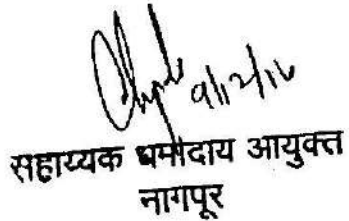 9/12/16
सहाय्यक धर्मादाय आयुक्त
नागपूर